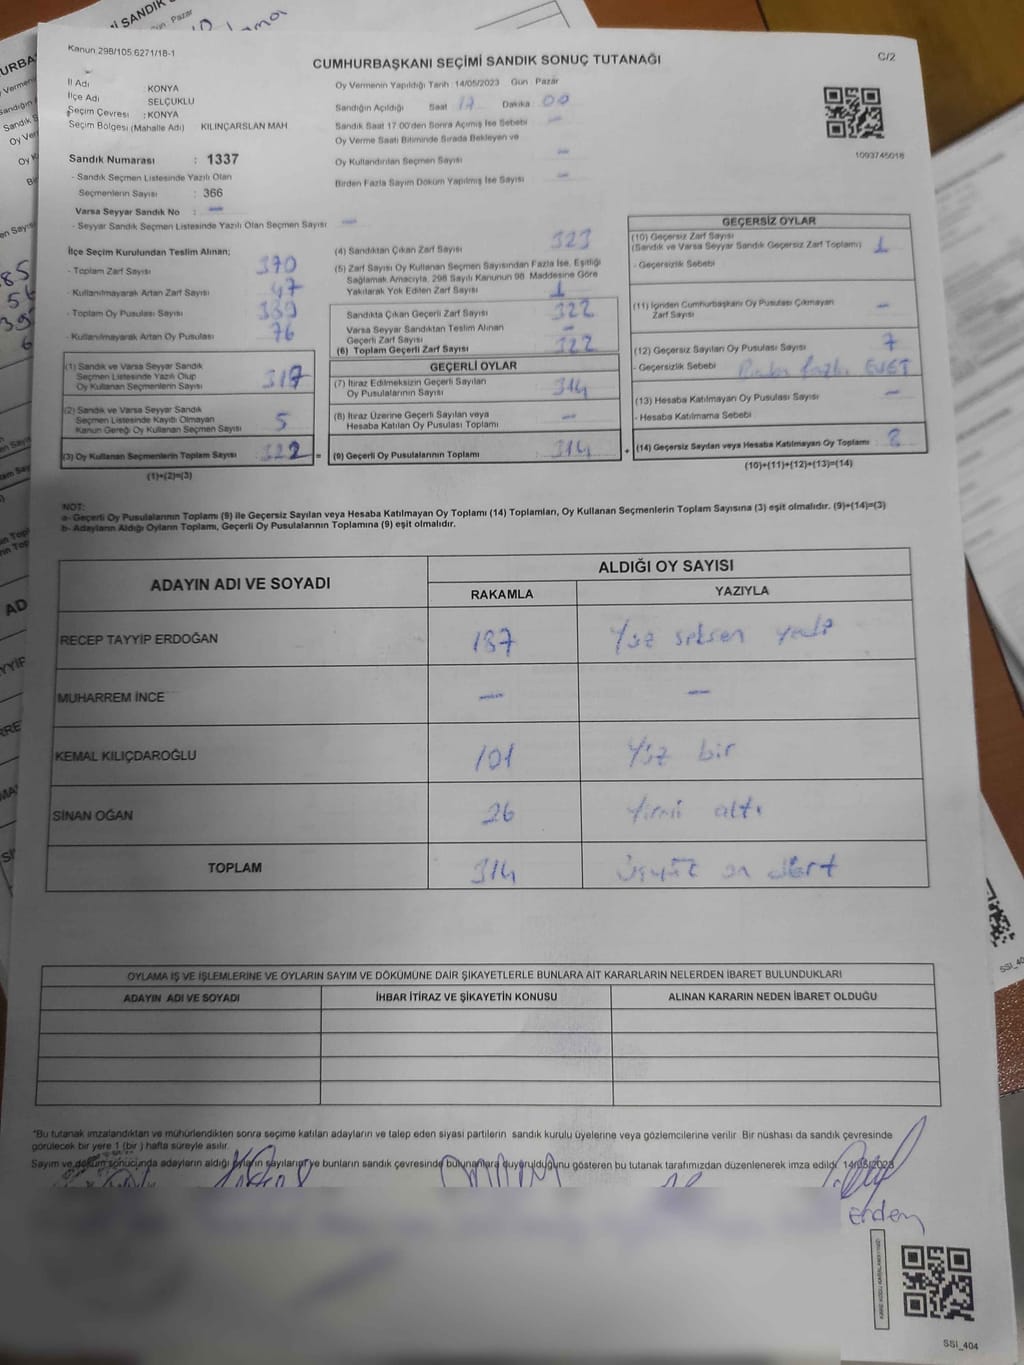 Kanun 298/105 6271/18-1
CUMHURBAŞKANI SEÇİMİ SANDIK SONUÇ TUTANAĞI
C/2
İl Adı : KONYA
İlçe Adı SELÇUKLU
Seçim Çevresi : KONYA
Seçim Bölgesi (Mahalle Adı) KILINÇARSLAN MAH
Sandık Numarası : 1337
- Sandık Seçmen Listesinde Yazılı Olan
Seçmenlerin Sayısı : 366
Varsa Seyyar Sandık No : —
- Seyyar Sandık Seçmen Listesinde Yazılı Olan Seçmen Sayısı —
Oy Vermenin Yapıldığı Tarih 14/05/2023 Gün Pazar
Sandığın Açıldığı Saat 17 Dakika 00
Sandık Saat 17 00'den Sonra Açılmış İse Sebebi —
Oy Verme Saati Bitiminde Sırada Bekleyen ve
Oy Kullandırılan Seçmen Sayısı —
Birden Fazla Sayım Döküm Yapılmış İse Sayısı —
1093745018
İlçe Seçim Kurulundan Teslim Alınan;
- Toplam Zarf Sayısı 370
- Kullanılmayarak Artan Zarf Sayısı 47
- Toplam Oy Pusulası Sayısı
- Kullanılmayarak Artan Oy Pusulası 76
(1) Sandık ve Varsa Seyyar Sandık
Seçmen Listesinde Yazılı Olup
Oy Kullanan Seçmenlerin Sayısı 317
(2) Sandık ve Varsa Seyyar Sandık
Seçmen Listesinde Kayıtlı Olmayan
Kanun Gereği Oy Kullanan Seçmen Sayısı 5
(3) Oy Kullanan Seçmenlerin Toplam Sayısı 322 =
(1)+(2)=(3)
(4) Sandıktan Çıkan Zarf Sayısı 323
(5) Zarf Sayısı Oy Kullanan Seçmen Sayısından Fazla İse, Eşitliği
Sağlamak Amacıyla, 298 Sayılı Kanunun 98. Maddesine Göre
Yakılarak Yok Edilen Zarf Sayısı 1
Sandıkta Çıkan Geçerli Zarf Sayısı : 322
Varsa Seyyar Sandıktan Teslim Alınan
Geçerli Zarf Sayısı —
(6) Toplam Geçerli Zarf Sayısı 322
GEÇERLİ OYLAR
(7) İtiraz Edilmeksizin Geçerli Sayılan
Oy Pusulasının Sayısı : 314
(8) İtiraz Üzerine Geçerli Sayılan veya
Hesaba Katılan Oy Pusulası Toplamı : —
(9) Geçerli Oy Pusulalarının Toplamı : 314 +
GEÇERSİZ OYLAR
(10) Geçersiz Zarf Sayısı
(Sandık ve Varsa Seyyar Sandık Geçersiz Zarf Toplamı) 1
- Geçersizlik Sebebi
(11) İçinden Cumhurbaşkanı Oy Pusulası Çıkmayan
Zarf Sayısı —
(12) Geçersiz Sayılan Oy Pusulası Sayısı 7
- Geçersizlik Sebebi fazla EVET
(13) Hesaba Katılmayan Oy Pusulası Sayısı —
- Hesaba Katılmama Sebebi
(14) Geçersiz Sayılan veya Hesaba Katılmayan Oy Toplamı : 8
(10)+(11)+(12)+(13)=(14)
NOT:
a- Geçerli Oy Pusulalarının Toplamı (9) ile Geçersiz Sayılan veya Hesaba Katılmayan Oy Toplamı (14) Toplamları, Oy Kullanan Seçmenlerin Toplam Sayısına (3) eşit olmalıdır. (9)+(14)=(3)
b- Adayların Aldığı Oyların Toplamı, Geçerli Oy Pusulalarının Toplamına (9) eşit olmalıdır.
ADAYIN ADI VE SOYADI
ALDIĞI OY SAYISI
RAKAMLA YAZIYLA
RECEP TAYYİP ERDOĞAN 187 Yüz seksen yedi
MUHARREM İNCE — —
KEMAL KILIÇDAROĞLU 101 Yüz bir
SİNAN OĞAN 26 Yirmi altı
TOPLAM 314 Üçyüz on dört
OYLAMA İŞ VE İŞLEMLERİNE VE OYLARIN SAYIM VE DÖKÜMÜNE DAİR ŞİKAYETLERLE BUNLARA AİT KARARLARIN NELERDEN İBARET BULUNDUKLARI
ADAYIN ADI VE SOYADI İHBAR İTİRAZ VE ŞİKAYETİN KONUSU ALINAN KARARIN NEDEN İBARET OLDUĞU
"Bu tutanak imzalandıktan ve mühürlendikten sonra seçime katılan adayların ve talep eden siyasi partilerin sandık kurulu üyelerine veya gözlemcilerine verilir. Bir nüshası da sandık çevresinde
görülecek bir yere 1 (bir ) hafta süreyle asılır.
Sayım ve döküm sonucunda adayların aldığı oyların sayılarını ve bunların sandık çevresinde bulunanlara duyurulduğunu gösteren bu tutanak tarafımızdan düzenlenerek imza edildi. 14/05/2023
Erdem
SSI_404